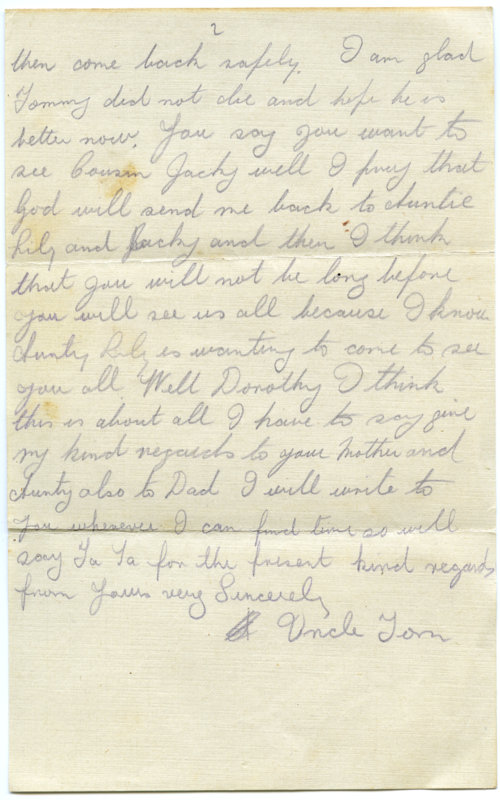 2
then come back safely. I am glad
Tommy did not die and hope he is
better now. You say you want to
see Cousin Jacky well I pray that
God will send me back to Auntie
Lily and Jacky and then I think
that you will not be long before
you will see us all because I know
Aunty Lily is wanting to come to see
you all. Well Dorothy I think
this is about all I have to say give
my kind regards to your Mother and
Aunty also to Dad I will write to
you whenever I can find time so will
say Ta Ta for the present kind regards
from Yours very Sincerely
Uncle Tom